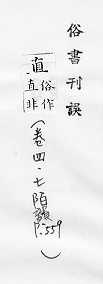 俗書刊誤
直俗作
直非
(卷四·七陌韻
P.559)